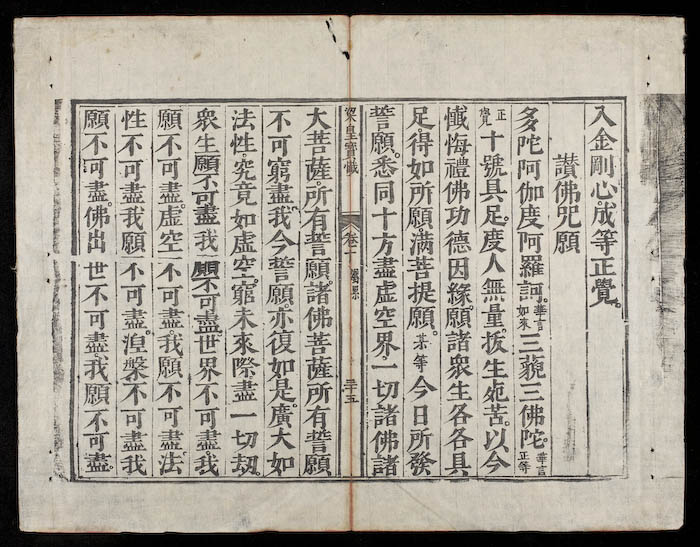 入金剛心。成等正覺。
讚佛咒願
多陀阿伽度阿羅訶。華言如來三藐三佛陀。華言正等
正覺十號具足。度人無量。拔生死苦。以今
懺悔禮佛功德因緣願諸衆生各各具
足得如所願。滿菩提願。某等今日所發
誓願。悉同十方盡虛空界一切諸佛諸
梁皇寶懺 卷十 囑累
大菩薩。所有誓願。諸佛菩薩所有誓願
不可窮盡。我今誓願。亦復如是。廣大如
法性。究竟如虛空。窮未來際盡一切劫。
衆生願不可盡我願不可盡世界不可盡。我
願不可盡。虛空不可盡。我願不可盡。法
性不可盡我願不可盡。涅槃不可盡我
願不可盡。佛出世不可盡我願不可盡。